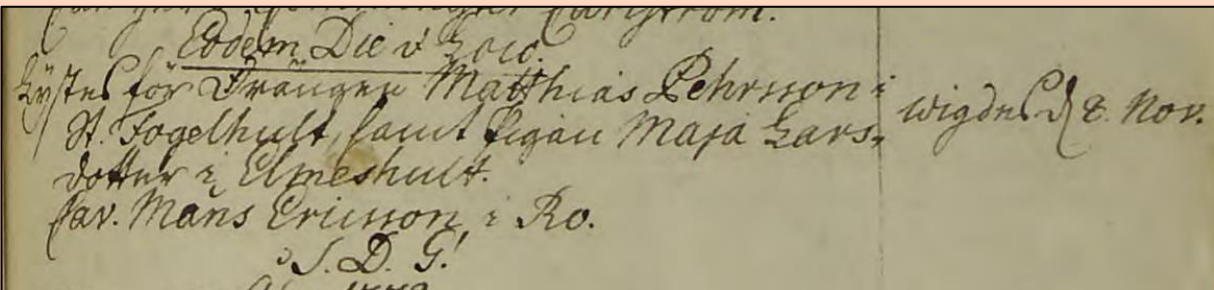 Carlström.
Eodem Die & Loco.
Lystes för Drängen Matthias Pehrsson i
St. Fogelhult, samt Pigan Maja Lars-
dotter i Elmeshult.
Cav. Måns Ericsson i Ro.
S. D. G!
wigdes d. 8. Nov.